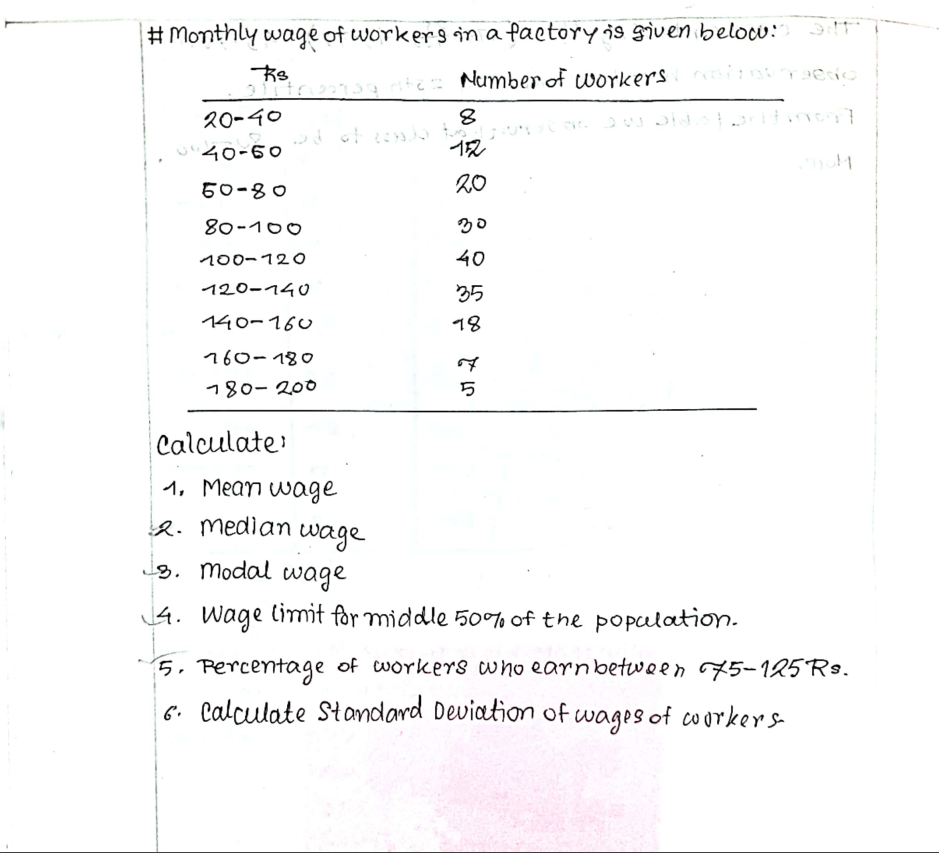 # Monthly wage of workers in a factory is given below:
Rs Number of workers
20-40 8
40-60 12
60-80 20
80-100 30
100-120 40
120-140 35
140-160 18
160-180 7
180-200 5
Calculate:
1. Mean wage
2. Median wage
3. Modal wage
4. Wage limit for middle 50% of the population.
5. Percentage of workers who earn between 75-125 Rs.
6. Calculate Standard Deviation of wages of workers